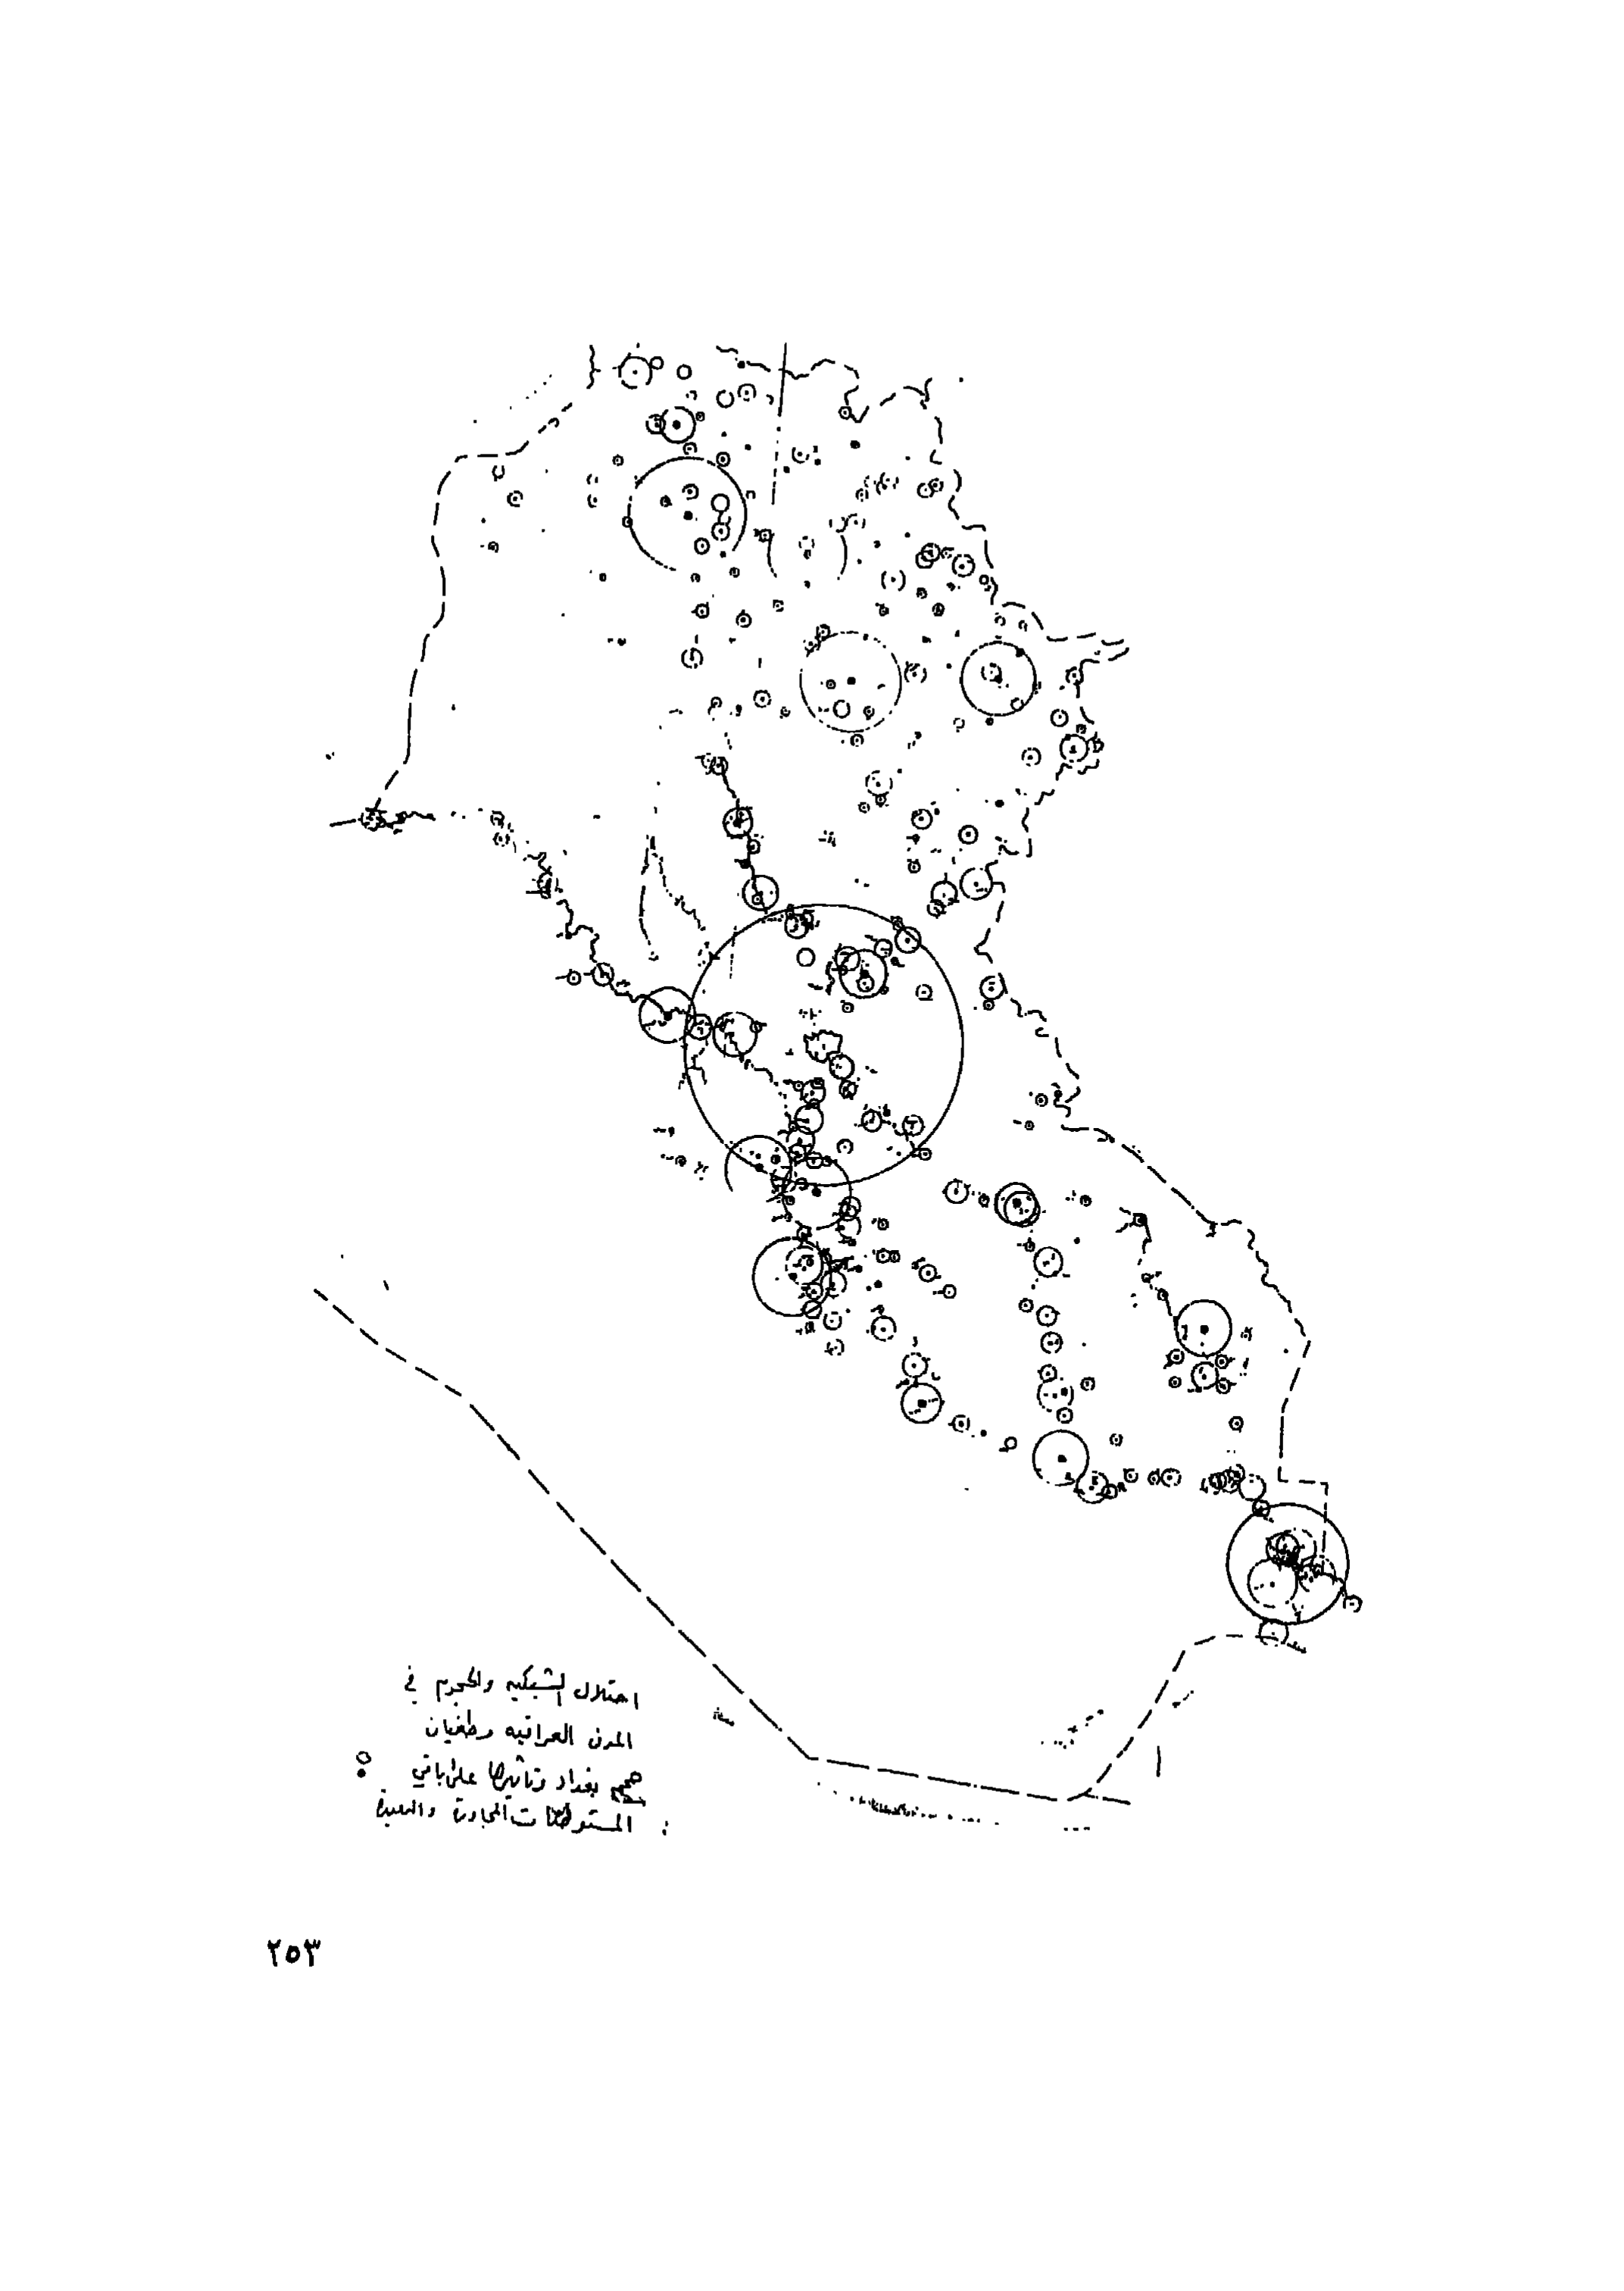 اختلال الشبكيه والحجوم في
المدن العراقيه وطغيان
حجم بغداد وتأثيرها على باقي
المستوطنات المجاورة والبعيدة :
٢٥٣